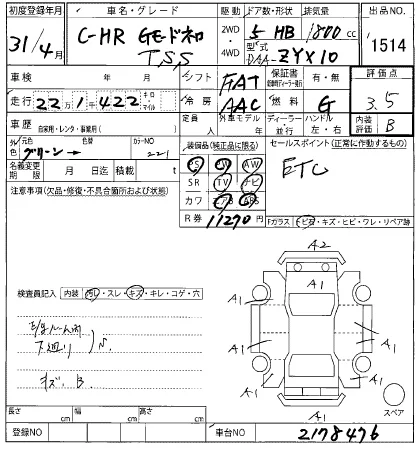 初度登録年月 車名・グレード 駆動 ドア数・形状 排気量 出品NO.
31/4月 C-HR Gモードネロ 2WD 5 HB 1800 cc 1514
TSS 4WD 型式 DAA-ZYX10
車検 年 月 シフト FAT 保証書 有・無 評価点
走行 22万1千422 キロ マイル 冷房 AAC 燃料 G 3.5
車歴 自家用・レンタ・事業用( ) 定員 人 外車モデル 年 ディーラー・並行 ハンドル 左・右 内装評価 B
外色 元色 グリーン 色替 カラーNO 221 装備品(純正品に限る) セールスポイント(正常に作動するもの)
名義変更期限 月 日迄 積載 t PS PW AW ETC
注意事項(欠品・修復・不具合箇所および状態) SR TV ナビ
カワ エアB ABS
R券 11270円
Fガラス トビ石・キズ・ヒビ・ワレ・リペア跡
A2
A1
A1 A1
検査員記入 内装 汚レ・スレ・キズ・キレ・コゲ・穴
A1 A1
下廻り
キズ. B
A1 A1
A1
スペア
長さ cm 幅 cm 高さ cm
登録NO 車台NO 2178476